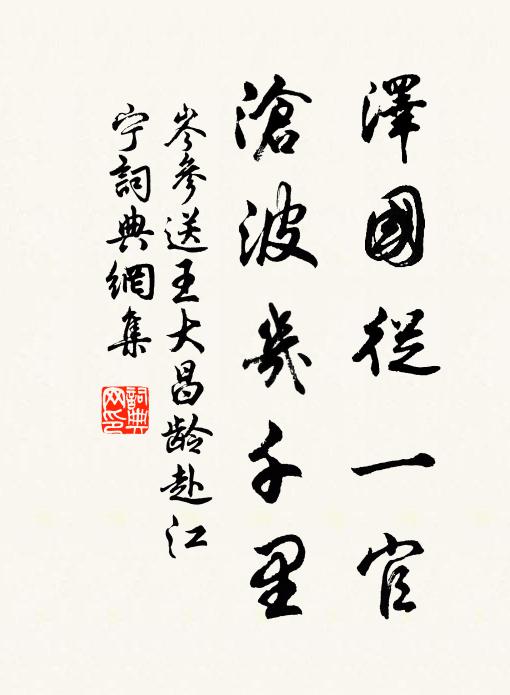 澤國從一官
滄波幾千里
岑參送王大昌龄赴江
宁詞典網集
詞典
网印